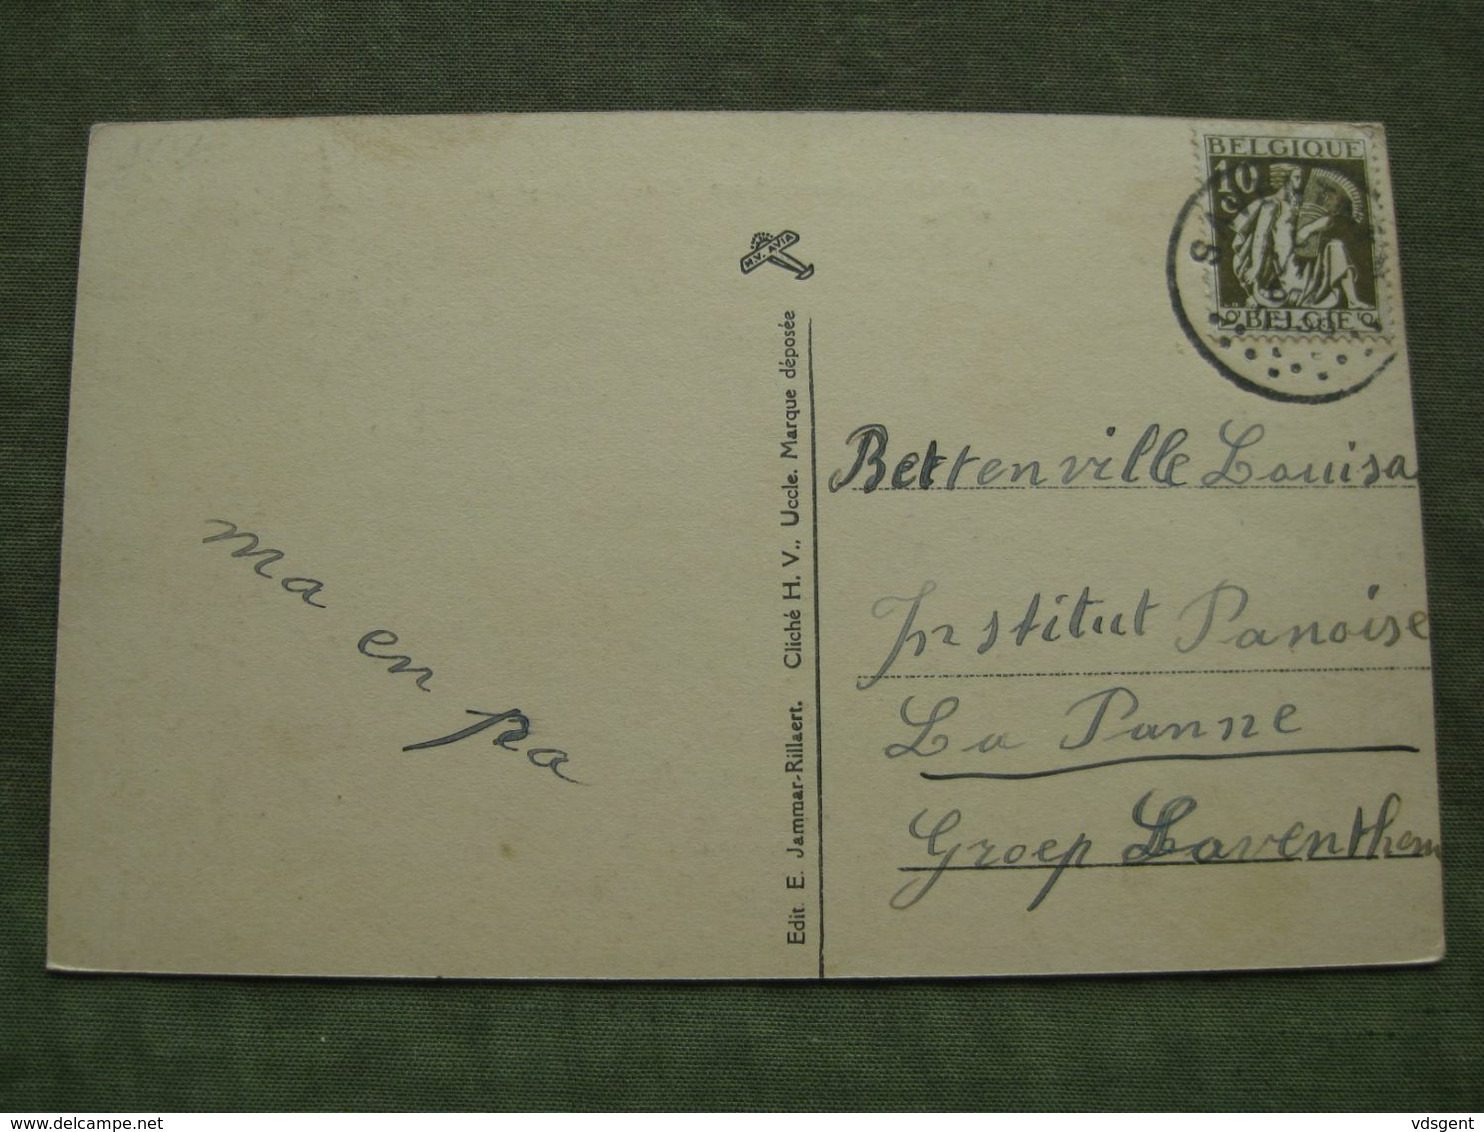 BELGIQUE
10
C
BELGIE
H.V. AVIA
Edit. E. Jammar-Rillaert. Cliché H. V., Uccle. Marque déposée
ma en pa
Bettenville Louisa
Institut Panoise
La Panne
Groep Laventhem
delcampe.net
vdsgent